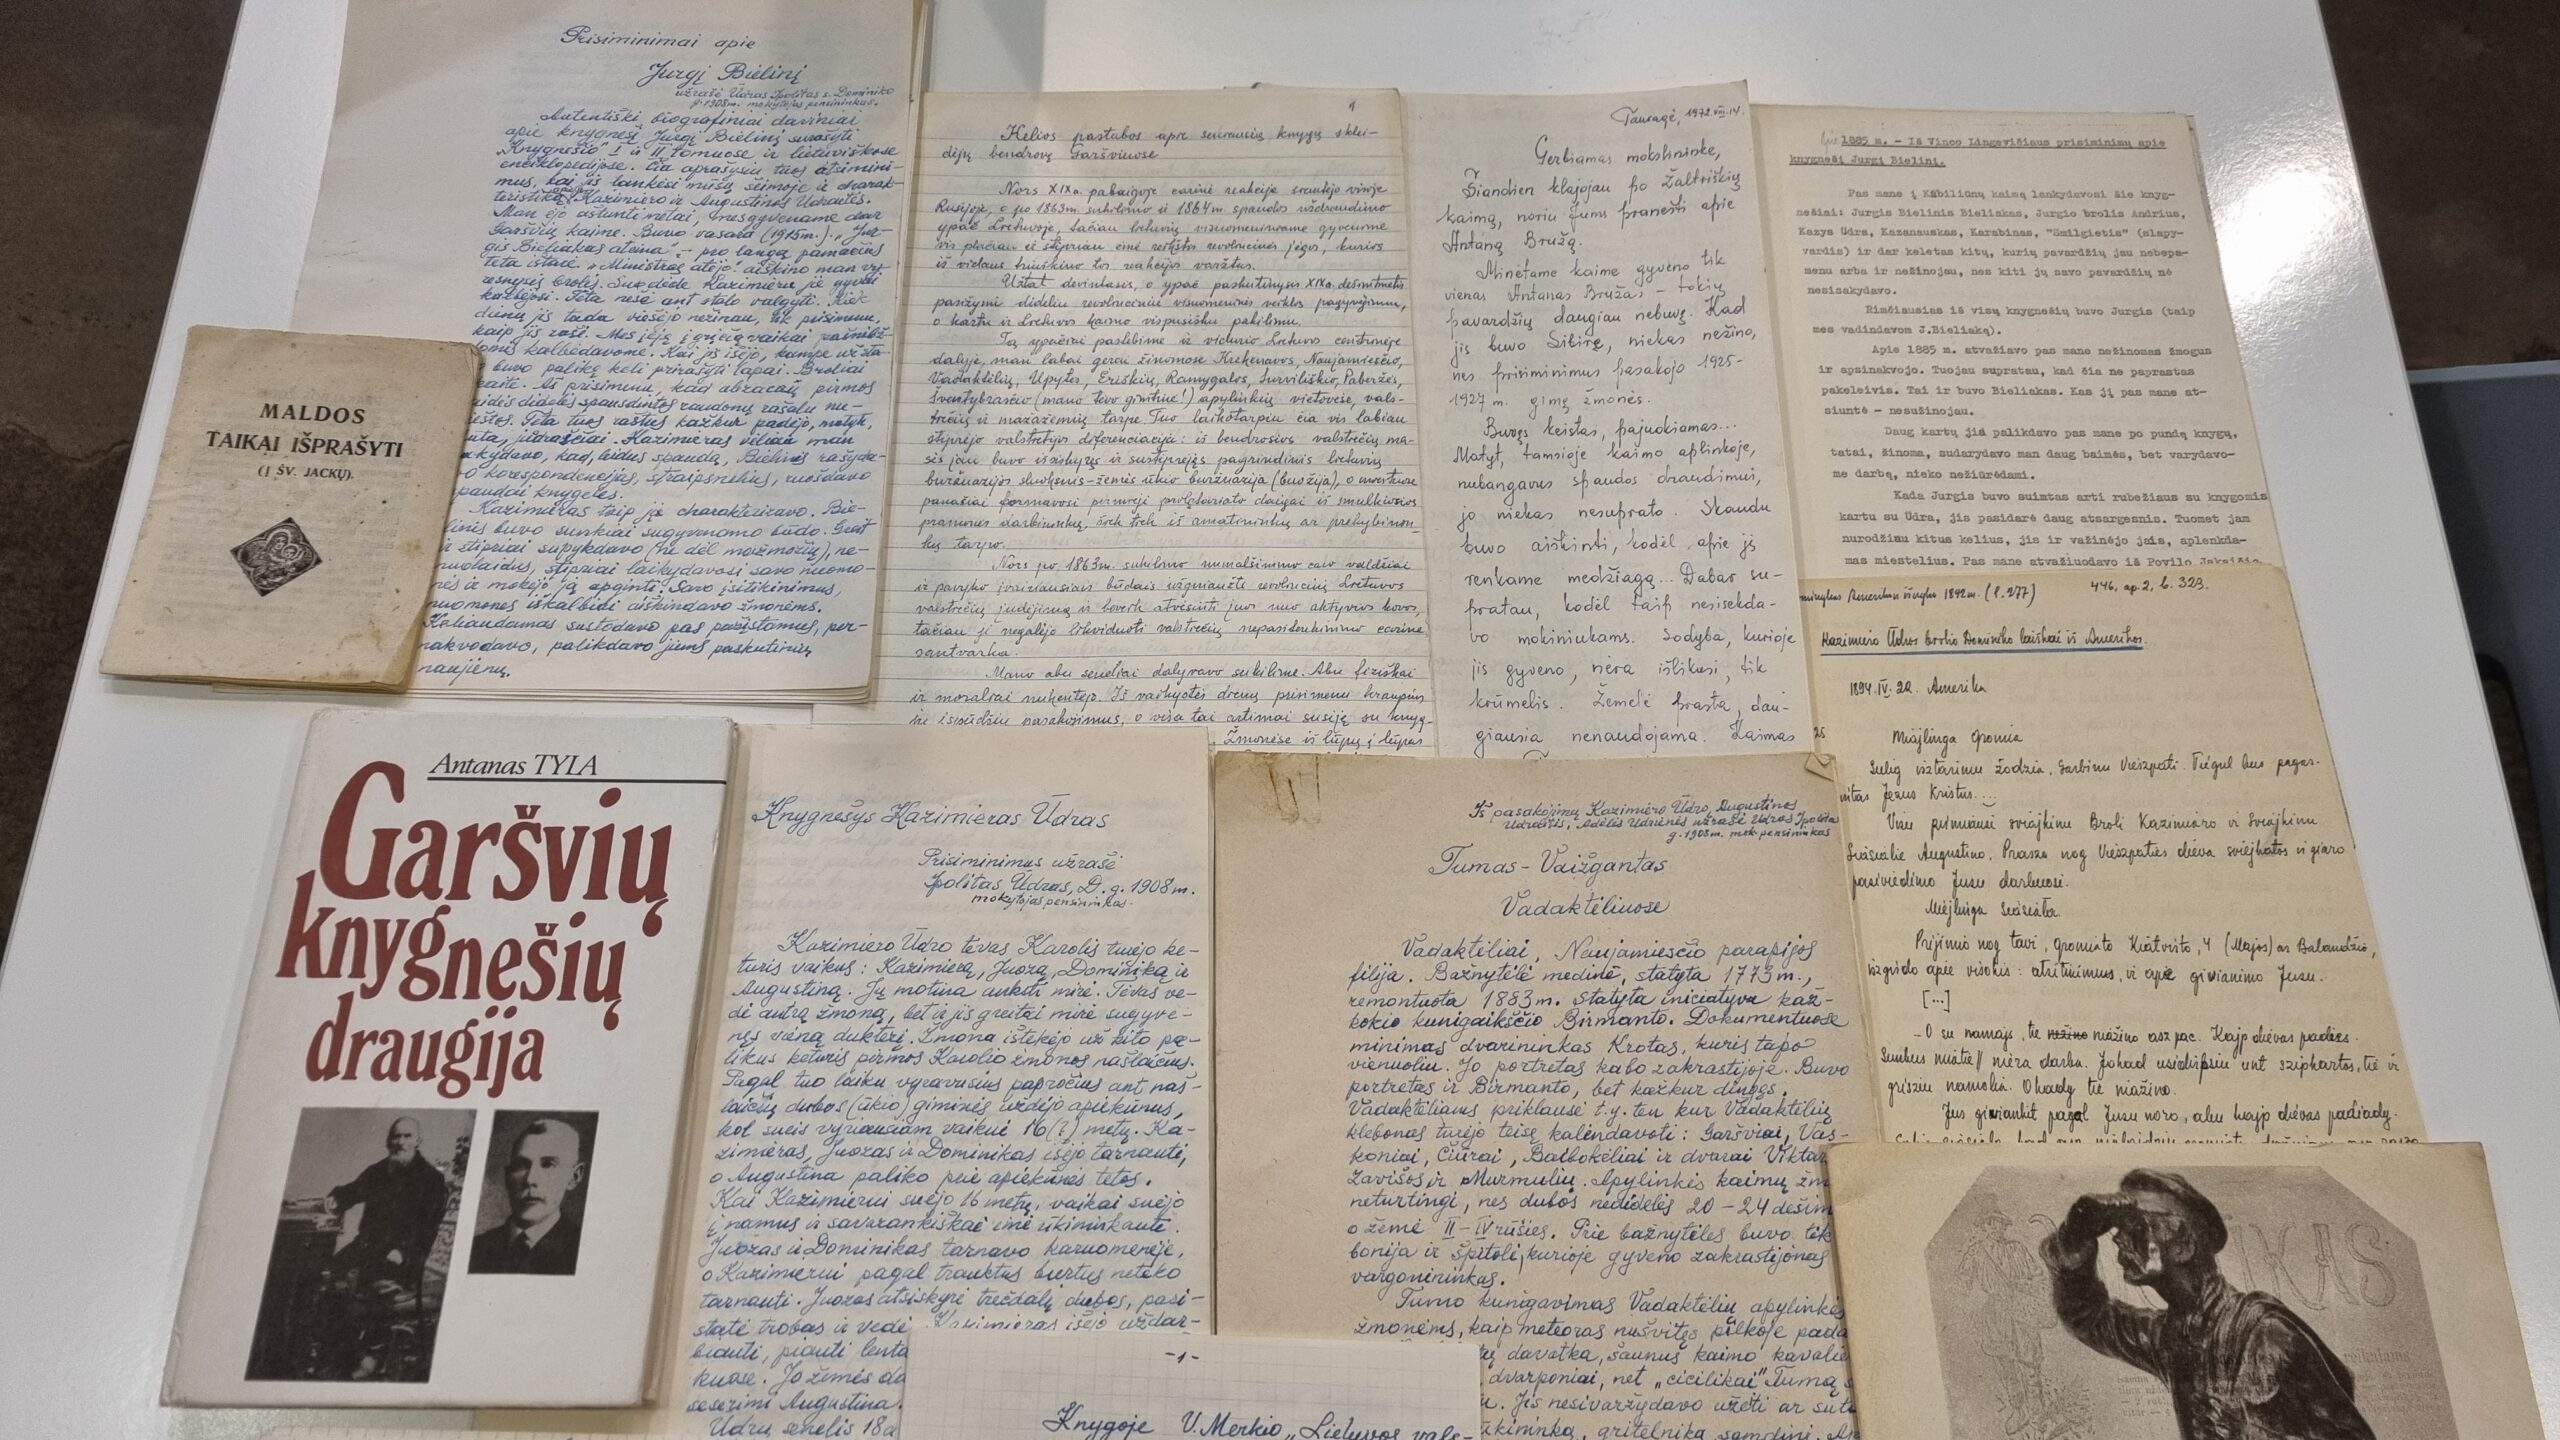 Prisiminimai apie
Jurgį Bielinį
užrašė Ūdras Ipolitas s. Dominiko
g. 1908m. mokytojas pensininkas.
Autentiški biografiniai daviniai
apie knygnešį Jurgį Bielinį surašyti
„Knygnešio" I ir II tomuose ir lietuviškose
enciklopedijose. Čia aprašysiu tuos atsimini-
mus, kai jis lankėsi mūsų šeimoje ir charak-
teristiką Kazimiero ir Augustinos Ūdraitės.
Man ėjo aštunti metai, mes gyvenome dar
Garšvių kaime. Buvo vasara (1915m.). „Jur-
gis Bieliakas ateina" – pro langą pamačius
teta ištarė. „Ministras atėjo" aiškino man vy-
resnysis brolis. Su dėde Kazimieru jie gyvai
kalbėjosi. Teta nešė ant stalo valgyti. Kiek
dienų jis tada viešėjo nežinau, tik prisimenu,
kaip jis rašė. Mes įėję į gryčią vaikai pašnibž-
domis kalbėdavome. Kai jis išėjo, kampe už sta-
buvo palikę keli prirašyti lapai. Broliai
skaitė. Aš prisimenu, kad abzacų pirmos
raidės didelės spausdintos raudonu rašalu
Teta tuos raštus kažkur padėjo, matyt,
Kazimieras vėliau man
sakydavo, kad, leidus spaudą, Bielinis rašyda-
o korespondencijas, straipsnelius, ruošdavo
spaudai knygeles.
Kazimieras taip jį charakterizavo. Bie-
linis buvo sunkiai sugyvenamo būdo. Greit
ir stipriai supykdavo (ne dėl mažmožių), ne-
nuolaidus, stipriai laikydavosi savo nuomo-
nės ir mokėjo ją apginti. Savo įsitikinimus,
nuomones iškalbiai aiškindavo žmonėms.
Keliaudamas sustodavo pas pažįstamus, per-
nakvodavo, palikdavo jiems paskutinių
naujienų.
MALDOS
TAIKAI IŠPRAŠYTI
(I ŠV. JACKŲ).
1
Kelios pastabos apie seniausią knygų sklei-
dėjų bendrovę Garšviuose
Nors XIX a. pabaigoje carinė reakcija siautėjo visoje
Rusijoje, o po 1863m. sukilimo ir 1864 m. spaudos uždraudimo
ypač Lietuvoje, tačiau lietuvių visuomeniniame gyvenime
vis plačiau ir stipriau ėmė reikštis revoliucinės jėgos, kurios
iš vidaus triuškino tos reakcijos varžtus.
Užtat devintasis, o ypač paskutinysis XIX a. dešimtmetis
pasižymi dideliu revoliucinės visuomeninės veiklos pagyvėjimu,
o kartu ir Lietuvos kaimo vispusišku pakilimu.
Tą ypačiai pastebime ir vidurio Lietuvos centrinėje
dalyje, man labai gerai žinomose Krekenavos, Naujamiesčio,
Vadaktėlių, Upytės, Ėriškių, Ramygalos, Surviliškio, Paberžės,
Šventybrasčio (mano tėvo gimtinė!) apylinkių vietovėse, vals-
tiečių ir mažažemių tarpe. Tuo laikotarpiu čia vis labiau
stiprėjo valstietijos diferenciacija: iš bendrosios valstiečių ma-
sės jau buvo išsiskyręs ir sustiprėjęs pagrindinis lietuvių
buržuazijos sluoksnis – žemės ūkio buržuazija (buožija), o miestuose
panašiai formavosi pirmieji proletariato daigai iš smulkiosios
pramonės darbininkų, šiek tiek iš amatininkų ar prekybinin-
kų tarpo.
Nors po 1863m. sukilimo numalšinimo caro valdžiai
ir pavyko įvairiausiais būdais užgniaužti revoliucinį Lietuvos
valstiečių judėjimą ir beveik atvėsinti juos nuo aktyvios kovos,
tačiau ji negalėjo likviduoti valstiečių nepasitenkinimo carine
santvarka.
Mano abu seneliai dalyvavo sukilime. Abu fiziškai
ir moraliai nukentėjo. Iš vaikystės dienų prisimenu kraupius
jų įspūdžių pasakojimus, o visa tai artimai susiję su knyg-
Žmonėse iš lūpų į lūpas
Tauragė, 1972.VIII.14.
Gerbiamas mokslininke,
Šiandien klajojau po Žaltriškių
kaimą, noriu Jums pranešti apie
Antaną Bružą.
Minėtame kaime gyveno tik
vienas Antanas Bružas – tokių
pavardžių daugiau nebuvę. Kad
jis buvo Sibire, niekas nežino,
nes prisiminimus pasakojo 1925-
1927 m. gimę žmonės.
Buvęs keistas, pajuokiamas...
Matyt, tamsioje kaimo aplinkoje,
nubangavus spaudos draudimui,
jo niekas nesuprato. Skaudu
buvo aiškinti, kodėl apie jį
renkame medžiagą... Dabar su-
pratau, kodėl taip nesisekda-
vo mokiniukams. Sodyba, kurioje
jis gyveno, nėra išlikusi, tik
krūmelis. Žemelė prasta, dau-
giausia nenaudojama. Kaimas
Apie 1885 m. - Iš Vinco Lingevičiaus prisiminimų apie
knygnešį Jurgį Bielinį.
Pas mane į Kābiliūnų kaimą lankydavosi šie knyg-
nešiai: Jurgis Bielinis Bieliakas, Jurgio brolis Andrius,
Kazys Udra, Kazanauskas, Karabinas, "Smilgietis" (slapy-
vardis) ir dar keletas kitų, kurių pavardžių jau nebepa-
menu arba ir nežinojau, nes kiti jų savo pavardžių nė
nesisakydavo.
Rimčiausias iš visų knygnešių buvo Jurgis (taip
mes vadindavom J.Bieliaką).
Apie 1885 m. atvažiavo pas mane nežinomas žmogus
ir apsinakvojo. Tuojau supratau, kad čia ne paprastas
pakeleivis. Tai ir buvo Bieliakas. Kas jį pas mane at-
siuntė - nesužinojau.
Daug kartų jis palikdavo pas mane po pundą knygų,
tatai, žinoma, sudarydavo man daug baimės, bet varydavo-
me darbą, nieko nežiūrėdami.
Kada Jurgis buvo suimtas arti rubežiaus su knygomis
kartu su Udra, jis pasidarė daug atsargesnis. Tuomet jam
nurodžiau kitus kelius, jis ir važinėjo jais, aplenkda-
mas miestelius. Pas mane atvažiuodavo iš Povilo Jakaičio
Amerikon išvyko 1892m. (l. 277)
446, ap. 2, b. 323.
Kazimiero Ūdros brolio Dominiko laiškai iš Amerikos.
1894.IV.22. Amerika
25
Miajlinga Gromia
Sulig isztarimu Žodzia, Garbinu Vieszpati. Tiegul bus pagar-
vitas Jezus Kristus....
Visu pirmiausi sviajkinu Broli Kazimiaro ir Sviajkinu
Siasialie Augustino. Praszo nog Vieszpaties dieva sviejkatos ir giaro
pasiviedimo Jusu darbuosi.
Miejlinga siasiala.
Prijimio nog tavi, gromiato Kiatvirto, 4 (Majos) ar Balandžio,
iszgirdo apie visokis: atsitinimus, ir apie givianimo Jusu.
[...]
Sunkus miatie // niera darba.
grisziu namolia. O kady tie niažino.
Jus givianikit pagal Jusu noro, abu kajp dievas padiady.
Antanas TYLA
Garšvių
knygnešių
draugija
Knygnešys Kazimieras Ūdras
Prisiminimus užrašė
Ipolitas Ūdras, D. g. 1908m.
mokytojas pensininkas.
Kazimiero Ūdro tėvas Karolis turėjo ke-
turis vaikus: Kazimierą, Juozą, Dominiką ir
Augustiną. Jų motina anksti mirė. Tėvas ve-
dė antrą žmoną, bet ir jis greitai mirė sugyve-
nęs vieną dukterį. Žmona ištekėjo už kito pa-
likus keturis pirmos Karolio žmonos našlaičius.
Pagal tuo laiku vyravusius papročius ant naš-
laičių dubos (ūkio) giminės uždėjo apiekūnus,
kol sueis vyriausiam vaikui 16(?) metų. Ka-
zimieras, Juozas ir Dominikas išėjo tarnauti,
o Augustina paliko prie apiekūnės tetos.
Kai Kazimierui suėjo 16 metų, vaikai suėjo
į namus ir savarankiškai ėmė ūkininkauti.
Juozas ir Dominikas tarnavo kariuomenėje,
o Kazimierui pagal trauktus burtus neteko
tarnauti. Juozas atsiskyrė trečdalį dubos, pasi-
statė trobas ir vedė. Kazimieras išėjo uždar-
biauti, piauti lenta
kuose. Jo žemės da
seserimi Augustina.
Ūdrų senelis 18
Iš pasakojimų Kazimiero Ūdro, Augustinos
Ūdraitės, Adelės Ūdrienės užrašė Ūdras Ipolitas
g. 1908m. mok. pensininkas
Tumas-Vaižgantas
Vadaktėliuose
Vadaktėliai, Naujamiesčio parapijos
filija. Bažnytėlė medinė, statyta 1773 m.,
remontuota 1883m. Statyta iniciatyva kaž-
kokio kunigaikščio Birmanto. Dokumentuose
minimas dvarininkas Krotas, kuris tapo
vienuoliu. Jo portretas kabo zakrastijoje. Buvo
portretas ir Birmanto, bet kažkur dingęs.
Vadaktėliams priklausė t.y. ten kur Vadaktėlių
klebonas turėjo teisę kalėndavoti: Garšviai, Vaš-
koniai, Čiūrai, Baibokėliai ir dvarai Viktar
Zavišos ir Murmulių. Apylinkės kaimų žm
neturtingi, nes dubos nedidelės 20 – 24 dešim
o žemė II–IV rūšies. Prie bažnytėlės buvo tik
bonija ir špitolė, kurioje gyveno zakrastijonas
vargonininkas.
Tumo kunigavimas Vadaktėlių apylinkės
žmonėms, kaip meteoras nušvitęs pilkoje pada
davatka, šaunus kaimo kavalie
dvarponiai, net „cicilikai" Tumą
Jis nesivaržydavo užeiti ar sute
ūkininką, gritelninką, samdinį.
-1-
Knygoje V. Merkio „Lietuvos vals-